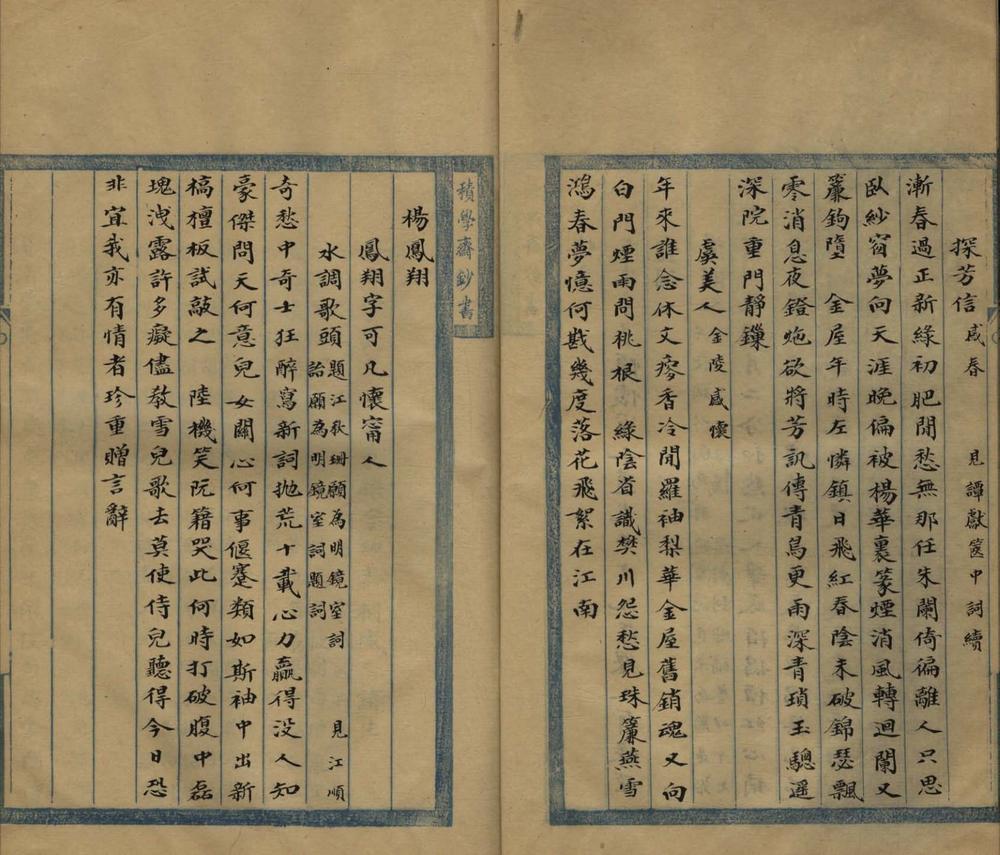 探芳信感春 見譚獻篋中詞續
漸春過正新綠初肥閒愁無那任朱闌倚徧離人只思
臥紗窗夢向天涯晚偏被楊華裹篆煙消風轉迴闌又
簾鉤墮 金屋年時左憐鎮日飛紅春陰未破錦瑟飄
零消息夜鐙灺欲將芳訊傳青鳥更雨深青瑣玉驄遥
深院重門靜鏁
虞美人金陵感懷
年來誰念休文瘳香冷閒羅袖梨華金屋舊銷魂又向
白門煙雨問桃根綠陰省識樊川怨愁見珠簾燕雪
鴻春夢憶何戡幾度落花飛絮在江南
積學齋鈔書
楊鳳翔
鳳翔字可凡懷甯人
水調歌頭題江秋珊願為明鏡室詞 見江順
詒願為明鏡室詞題詞
奇愁中奇士狂醉寫新詞拋荒十載心力贏得没人知
豪傑問天何意兒女關心何事偃蹇類如斯袖中出新
槁檀板試敲之 陸機笑阮籍哭此何時打破腹中磊
瑰洩露許多癡儘教雪兒歌去莫使侍兒聽得今日恐
非宜我亦有情者珍重贈言辭